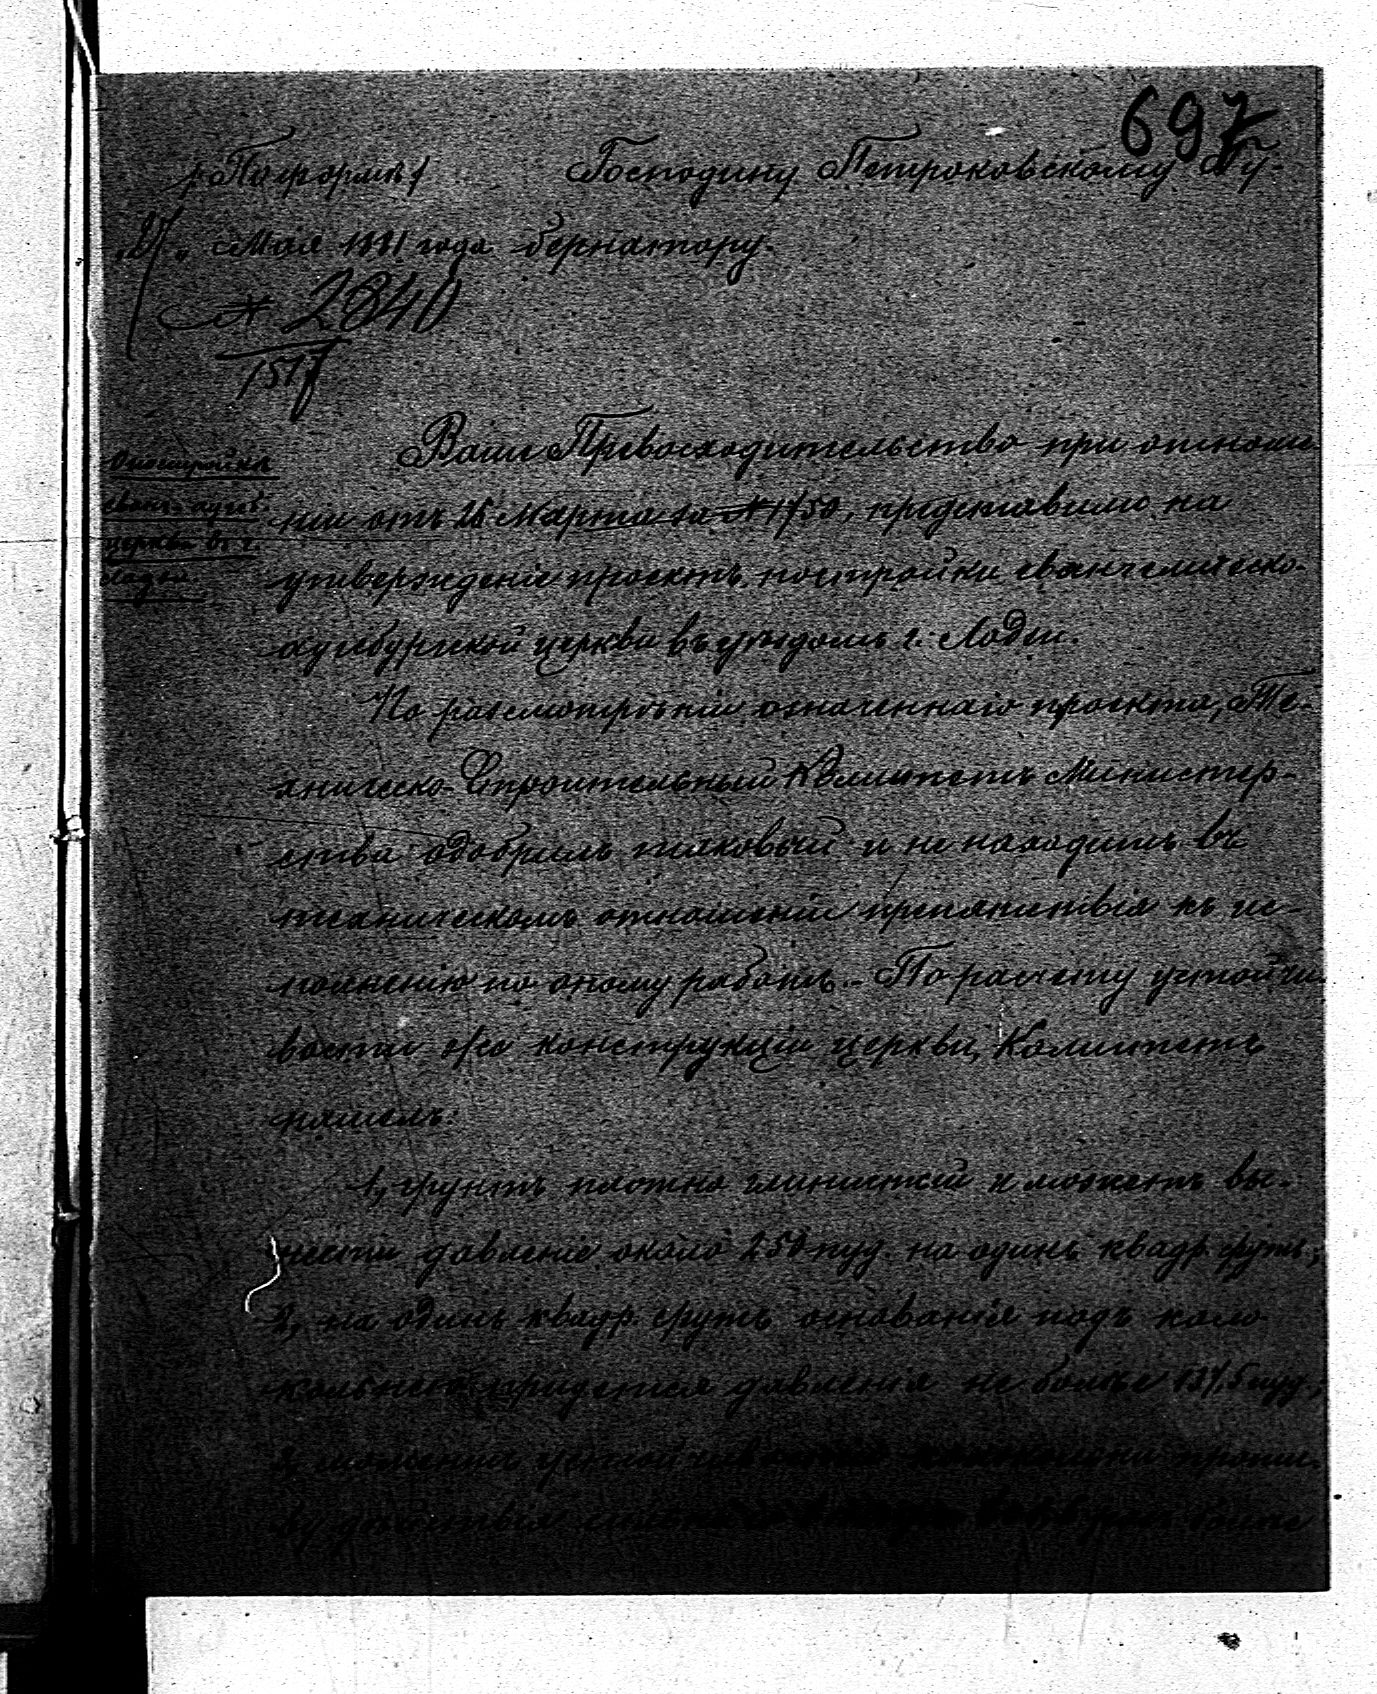 697
/По формѣ/
Господину Петроковскому Гу-
Мая 1881 года
бернатору.
№ 2840
1517
О постройкѣ
еванг.-аугсб.
церкви въ г.
Лодзи.
Ваше Превосходительство при отноше
ніи отъ 26 Марта за № 1750, представили на
утвержденіе проектъ постройки евангелическо-
аугсбургской церкви въ уѣздномъ г. Лодзи.
По разсмотрѣніи означеннаго проекта, Те-
хническо-Строительный Комитетъ Министер-
ства одобрилъ таковый и не находитъ въ
техническомъ отношеніи препятствія къ ис-
полненію по оному работъ.- По расчету устойчи-
вости же конструкціи церкви, Комитетъ
нашелъ:
1, грунтъ плотно глинистый и можетъ вы-
нести давленіе около 250 пуд. на одинъ квадр. футъ;
2, на одинъ квадр. футъ основанія подъ коло
кольнею придется давленія не болѣе пуд,
3, моментъ проти-
ву дѣйствія разъ болѣе